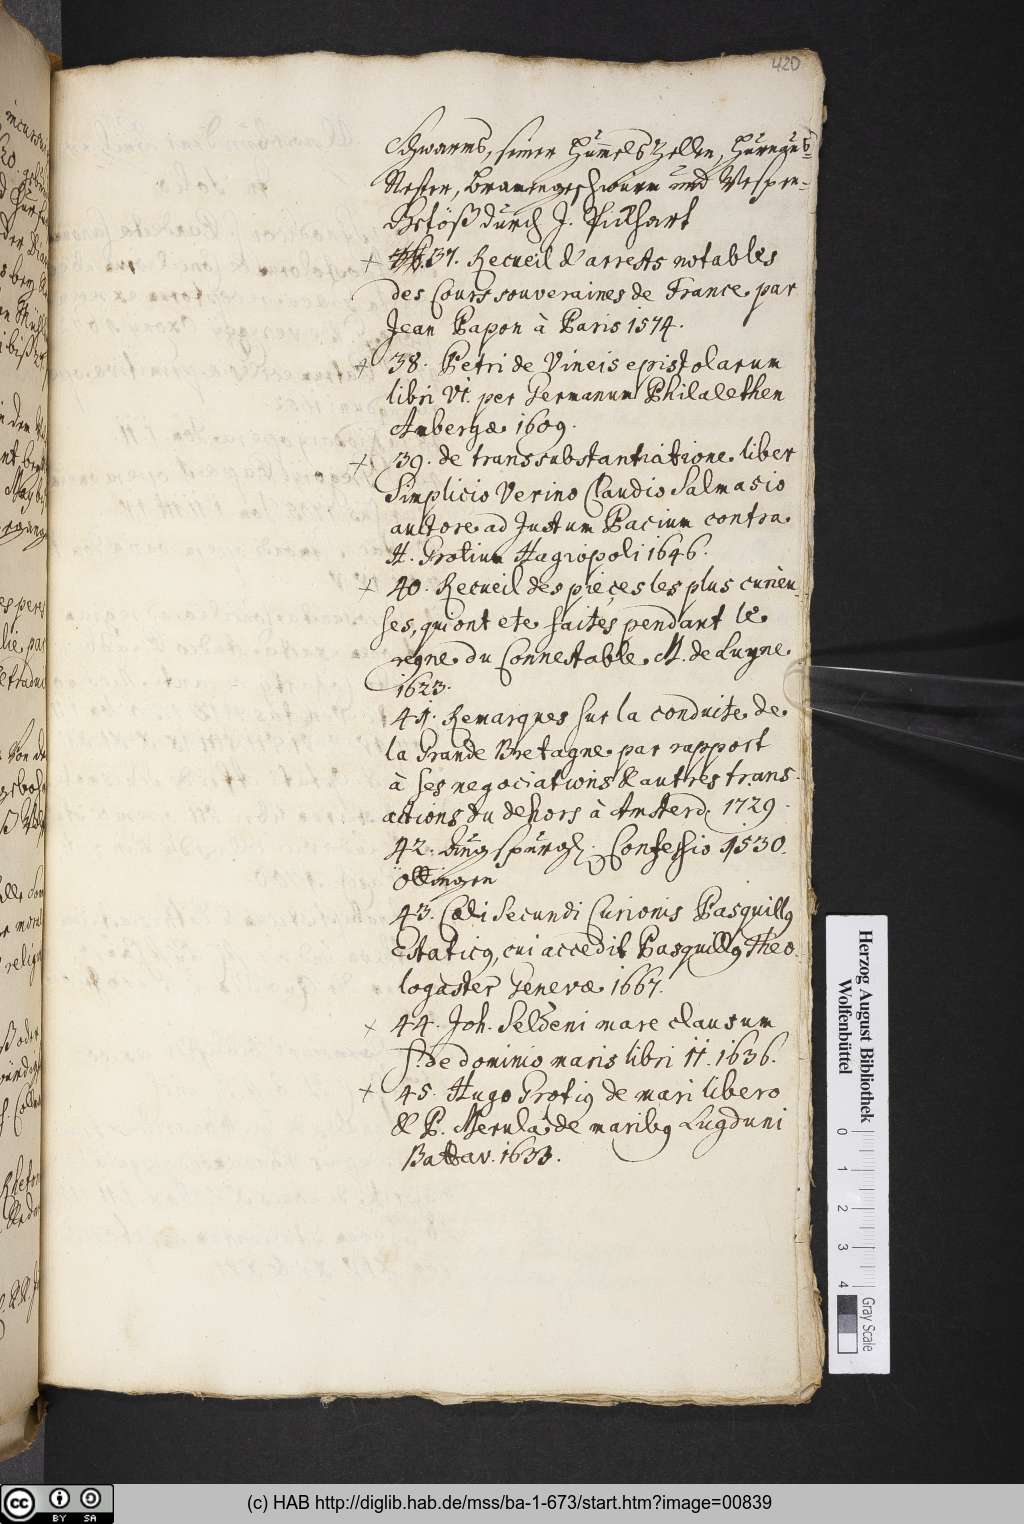 420
Schwarms, seiner Hum̃els Zellen, Hürnaus-
Nester, Bramengeschwürm und Wespen-
Getöß durch J. Fischart
+ 37. Recueil d'arrests notables
des Cours souveraines de France par
Jean Papon à Paris 1574.
+ 38. Petri de Vineis epistolarum
libri VI. per Germanum Philalethen
Ambergæ 1609.
+ 39. de transsubstantiatione liber
Simplicio Verino Claudio Salmasio
auctore ad Justum Pacium contra
H. Grotium Hagiopoli 1646.
+ 40. Recueil des pieçes les plus curieu-
ses, qui ont ete faites pendant le
regne du Connestable M. de Luyne
1623.
41. Remarques sur la conduite de
la Grande Bretagne par rapport
à ses negociations & autres trans-
actions du dehors à Amsterd. 1729.
42. Augspurg. Confessio 1530.
Öttingen
43. Cæli Secundi Curionis Pasquillus
Estaticus, cui accedit Pasquillus Theo-
logaster Genevæ 1667.
+ 44. Joh. Seldeni mare clausum
s. de dominio maris libri II. 1636.
+ 45. Hugo Grotius de mari libero
& P. Merula de maribus Lugduni
Battav. 1633.
Herzog August Bibliothek
Wolfenbüttel
0 1 2 3 4
Gray Scale
CC BY SA
(c) HAB http://diglib.hab.de/mss/ba-1-673/start.htm?image=00839